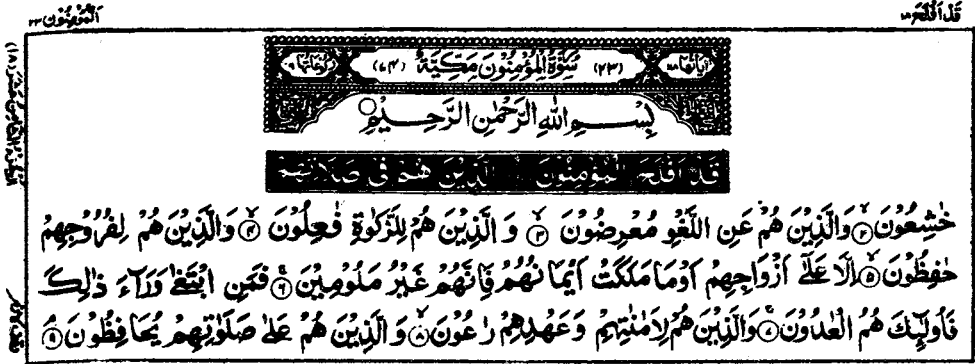 قَدۡ اَفۡلَحَ ۱۸
الۡمُؤۡمِنُوۡن ۲۳
اٰیَاتُهَا ۱۱۸ (۲۳) سُوۡرَةُ الۡمُؤۡمِنُوۡنَ مَكِّیَّةٌ (۷۴) رُكُوۡعَاتُهَا ۶
بِسۡمِ اللّٰهِ الرَّحۡمٰنِ الرَّحِیۡمِ
قَدۡ اَفۡلَحَ الۡمُؤۡمِنُوۡنَ الَّذِیۡنَ هُمۡ فِیۡ صَلَاتِهِمۡ
خٰشِعُوۡنَ ۲ وَالَّذِیۡنَ هُمۡ عَنِ اللَّغۡوِ مُعۡرِضُوۡنَ ۳ وَالَّذِیۡنَ هُمۡ لِلزَّكٰوةِ فٰعِلُوۡنَ ۴ وَالَّذِیۡنَ هُمۡ لِفُرُوۡجِهِمۡ
حٰفِظُوۡنَ ۵ اِلَّا عَلٰۤی اَزۡوَاجِهِمۡ اَوۡ مَا مَلَكَتۡ اَیۡمَانُهُمۡ فَاِنَّهُمۡ غَیۡرُ مَلُوۡمِیۡنَ ۶ فَمَنِ ابۡتَغٰی وَرَآءَ ذٰلِكَ
فَاُولٰٓئِكَ هُمُ الۡعٰدُوۡنَ ۷ وَالَّذِیۡنَ هُمۡ لِاَمٰنٰتِهِمۡ وَعَهۡدِهِمۡ رٰعُوۡنَ ۸ وَالَّذِیۡنَ هُمۡ عَلٰی صَلَوٰتِهِمۡ یُحَافِظُوۡنَ ۹